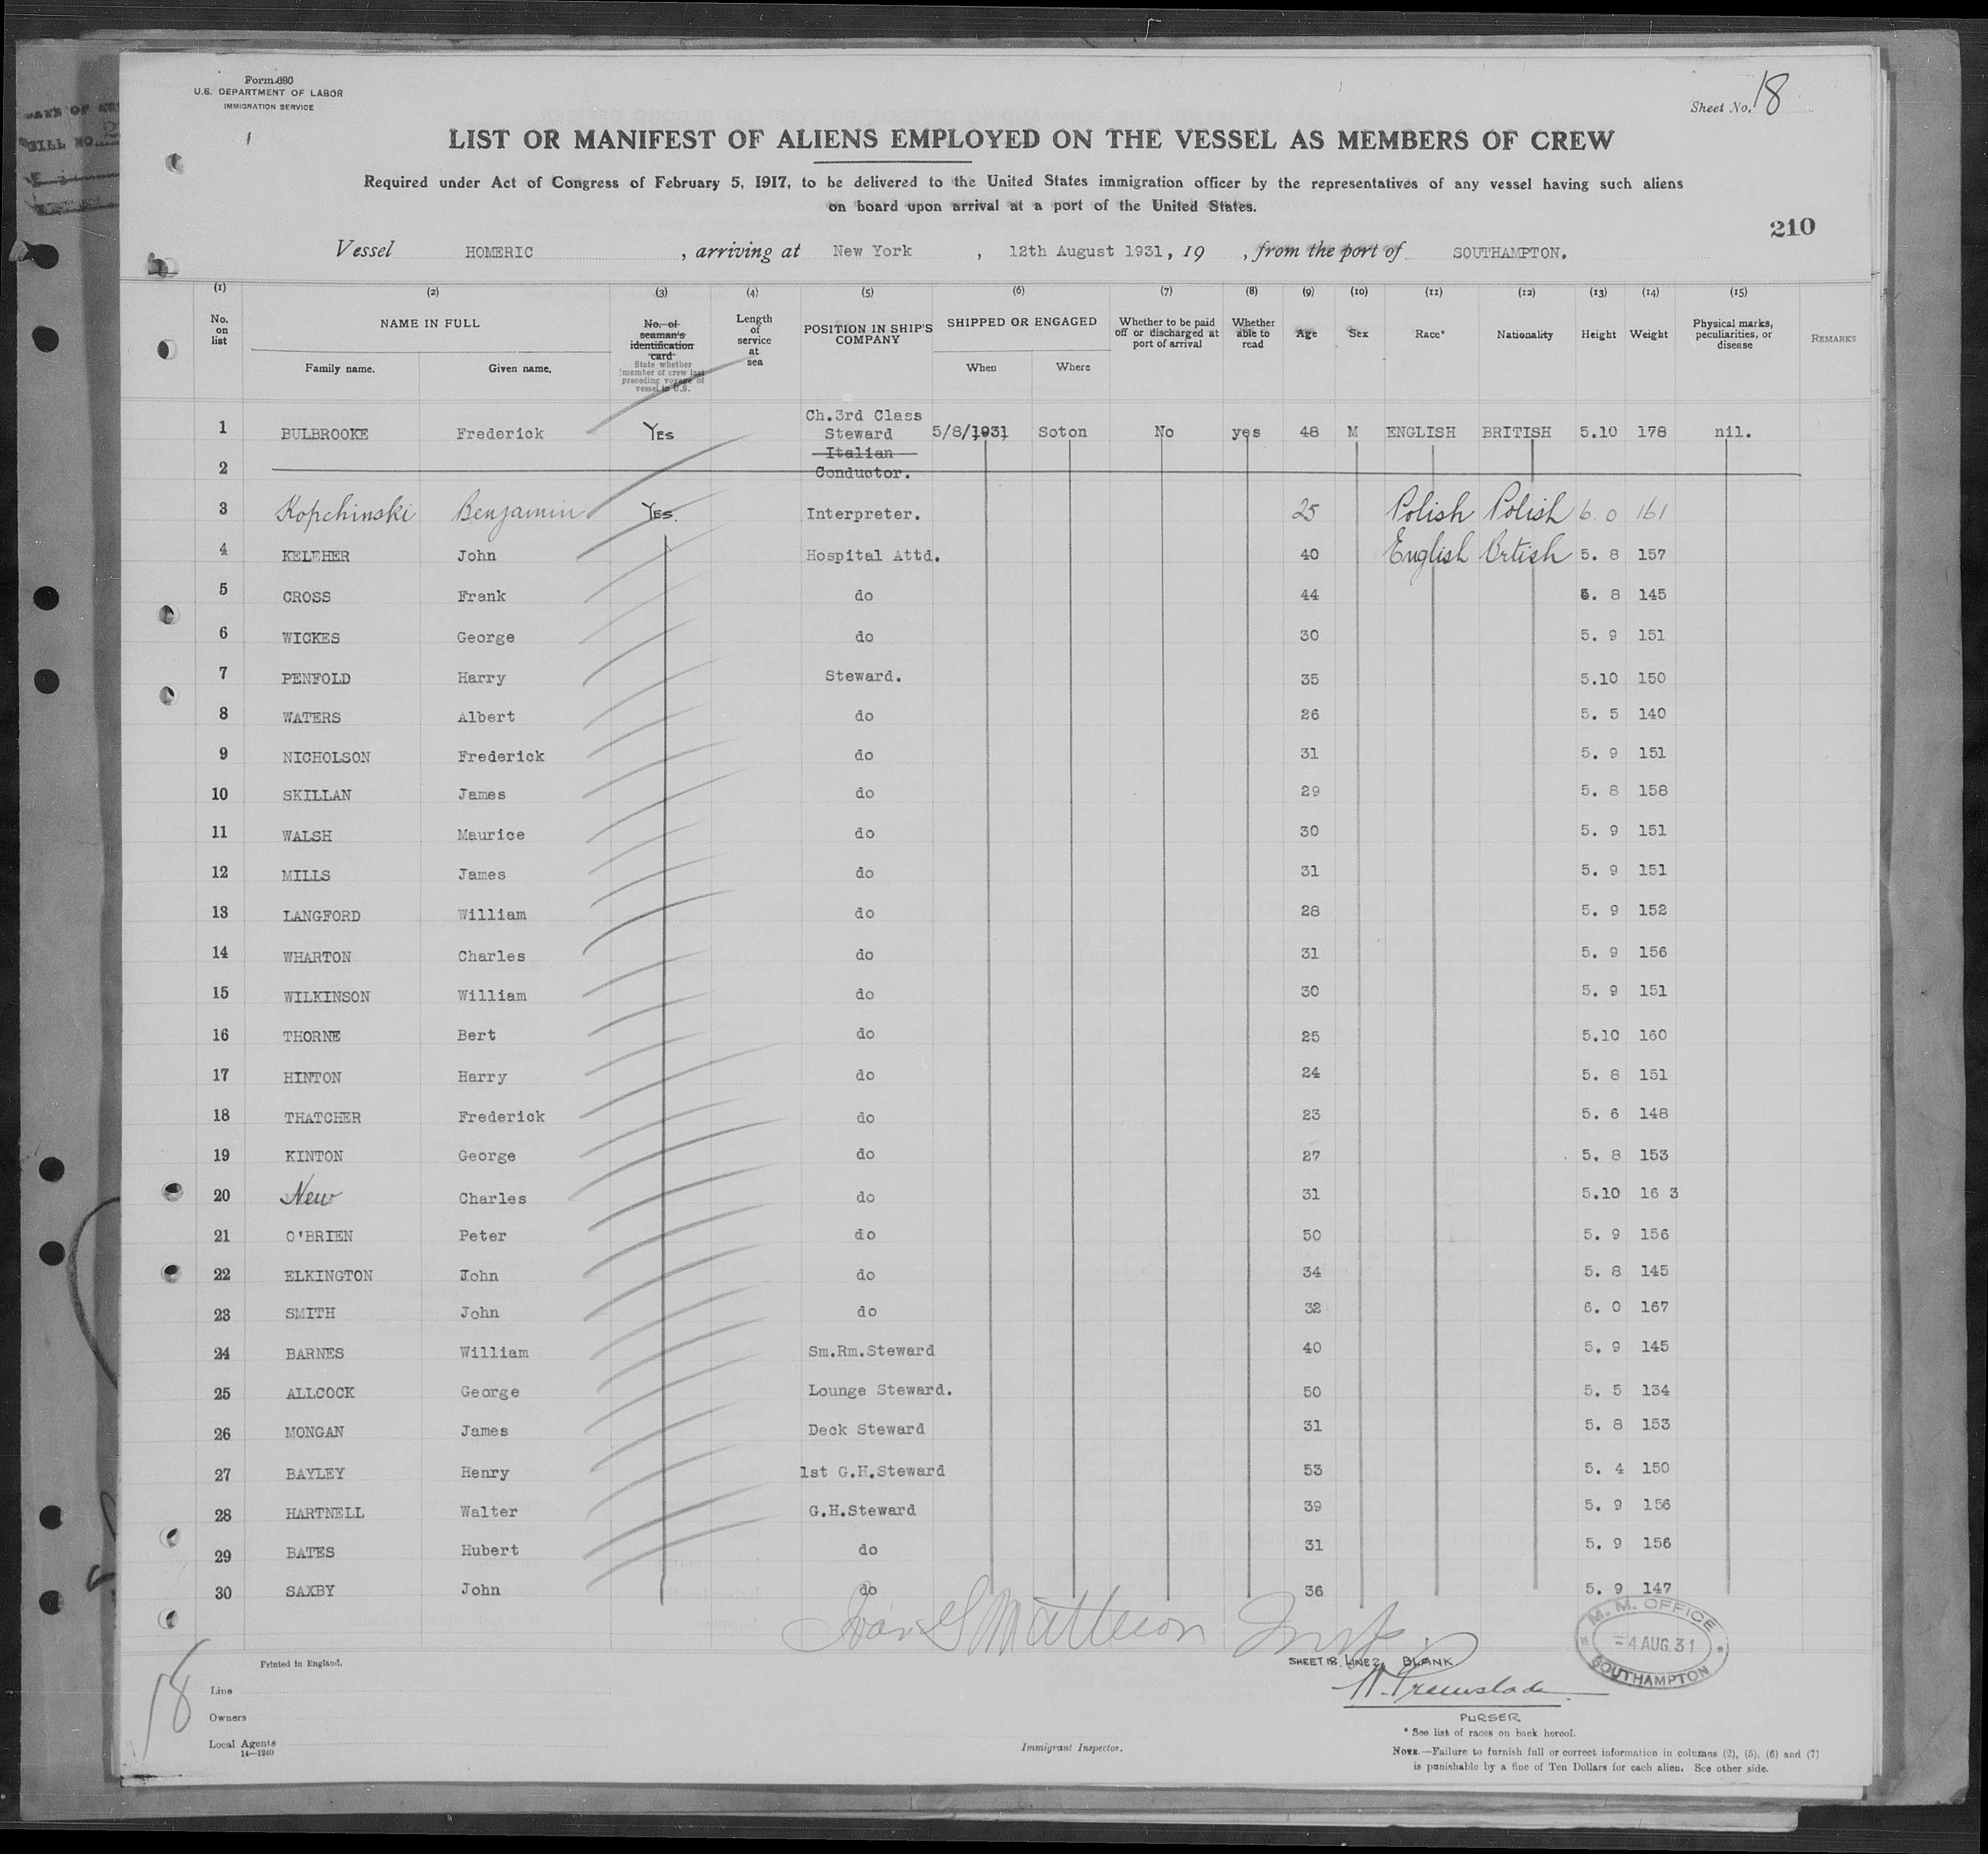 Form 680
U.S. DEPARTMENT OF LABOR
IMMIGRATION SERVICE
Sheet No. 18
LIST OR MANIFEST OF ALIENS EMPLOYED ON THE VESSEL AS MEMBERS OF CREW
Required under Act of Congress of February 5, 1917, to be delivered to the United States immigration officer by the representatives of any vessel having such aliens
on board upon arrival at a port of the United States.
210
Vessel HOMERIC, arriving at New York, 12th August 1931, 19 , from the port of SOUTHAMPTON.
(1) (2) (3) (4) (5) (6) (7) (8) (9) (10) (11) (12) (13) (14) (15)
No. on list NAME IN FULL Family name. Given name. No. of seaman's identification card State whether member of crew last preceding voyage of vessel to U.S. Length of service at sea POSITION IN SHIP'S COMPANY SHIPPED OR ENGAGED When Where Whether to be paid off or discharged at port of arrival Whether able to read Age Sex Race* Nationality Height Weight Physical marks, peculiarities, or disease REMARKS
1 BULBROOKE Frederick YES Ch.3rd Class Steward 5/8/1931 Soton No yes 48 M ENGLISH BRITISH 5.10 178 nil.
2 Italian Conductor.
3 Kopchinski Benjamin YES. Interpreter. 25 Polish Polish 6. 0 161
4 KELEHER John Hospital Attd. 40 English Brtish 5. 8 157
5 CROSS Frank do 44 5. 8 145
6 WICKES George do 30 5. 9 151
7 PENFOLD Harry Steward. 35 5.10 150
8 WATERS Albert do 26 5. 5 140
9 NICHOLSON Frederick do 31 5. 9 151
10 SKILLAN James do 29 5. 8 158
11 WALSH Maurice do 30 5. 9 151
12 MILLS James do 31 5. 9 151
13 LANGFORD William do 28 5. 9 152
14 WHARTON Charles do 31 5. 9 156
15 WILKINSON William do 30 5. 9 151
16 THORNE Bert do 25 5.10 160
17 HINTON Harry do 24 5. 8 151
18 THATCHER Frederick do 23 5. 6 148
19 KINTON George do 27 5. 8 153
20 New Charles do 31 5.10 16 3
21 O'BRIEN Peter do 50 5. 9 156
22 ELKINGTON John do 34 5. 8 145
23 SMITH John do 32 6. 0 167
24 BARNES William Sm.Rm.Steward 40 5. 9 145
25 ALLCOCK George Lounge Steward. 50 5. 5 134
26 MONGAN James Deck Steward 31 5. 8 153
27 BAYLEY Henry 1st G.H.Steward 53 5. 4 150
28 HARTNELL Walter G.H.Steward 39 5. 9 156
29 BATES Hubert do 31 5. 9 156
30 SAXBY John do 36 5. 9 147
M. M. OFFICE
4 AUG. 31
SOUTHAMPTON
Printed in England.
SHEET 18. LINE 2, BLANK
18
Line
Owners
PURSER
Local Agents
14—1240
Immigrant Inspector.
* See list of races on back hereof.
NOTE.—Failure to furnish full or correct information in columns (2), (5), (6) and (7)
is punishable by a fine of Ten Dollars for each alien. See other side.